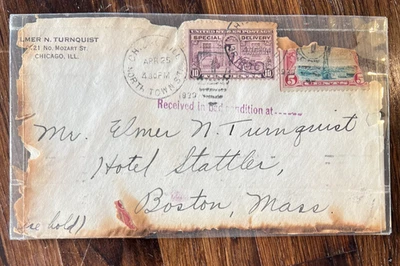 LMER N. TURNQUIST
21 No. MOZART ST.
CHICAGO, ILL.
APR 25
4:30 PM
NORTH TOWN ST
UNITED STATES POSTAGE
SPECIAL DELIVERY
10 10
5 5
Received in bad condition at
Mr. Elmer N. Turnquist
Hotel Stattler,
Boston, Mass.
se hold)